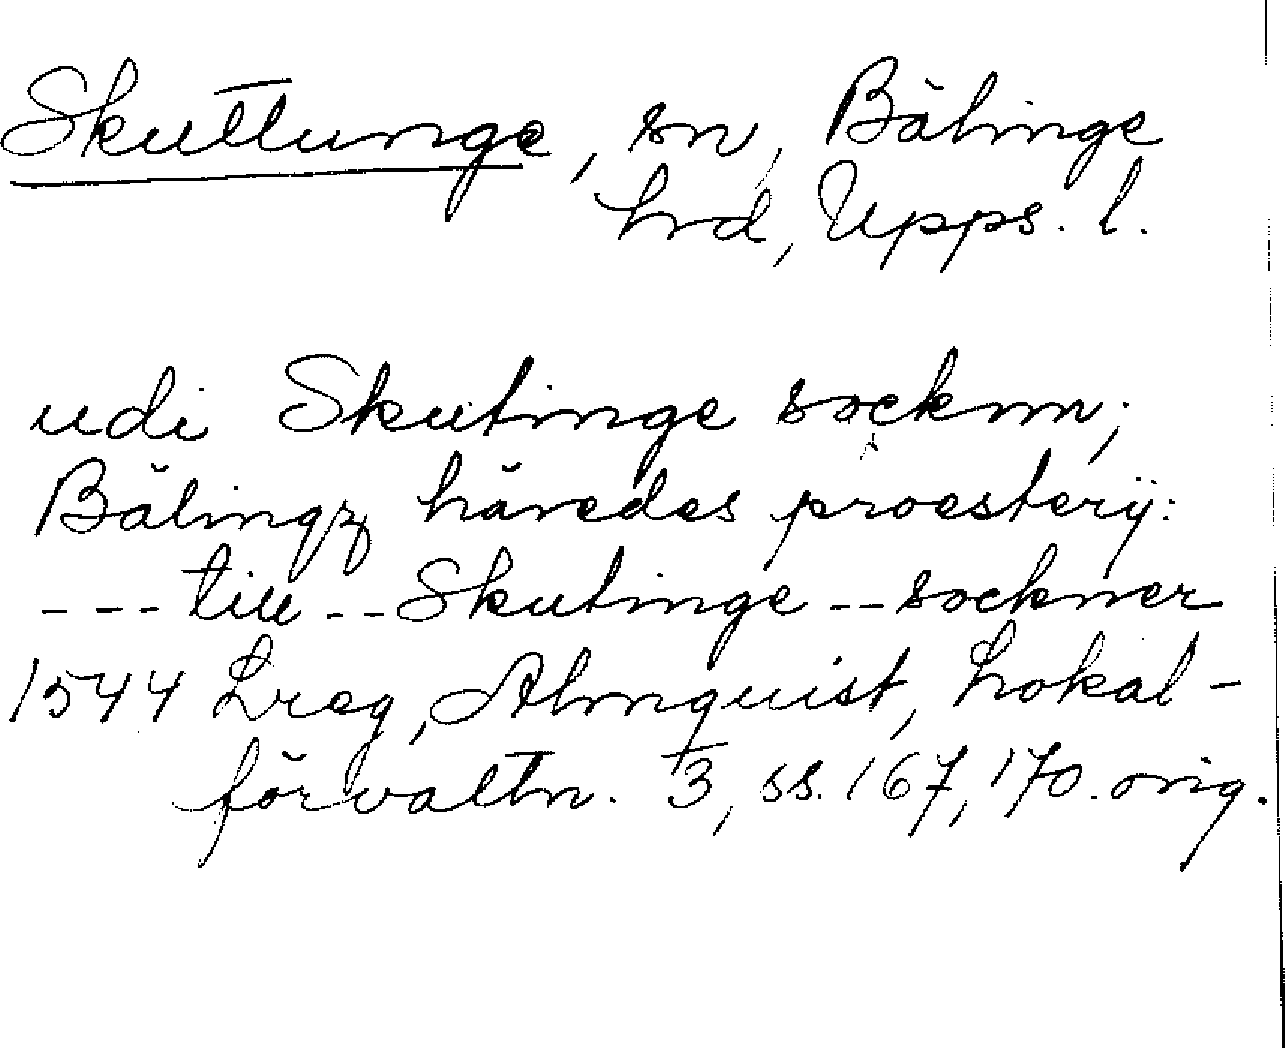 Skuttunge, sn, Bälinge
hrd, Upps. l.
udi Skutinge socknn;
Bälingz häredes proesterij:
--- till -- Skutinge -- sockner
1544 Lreg, Almquist, Lokal-
förvaltn. 3, ss. 167, 170. orig.